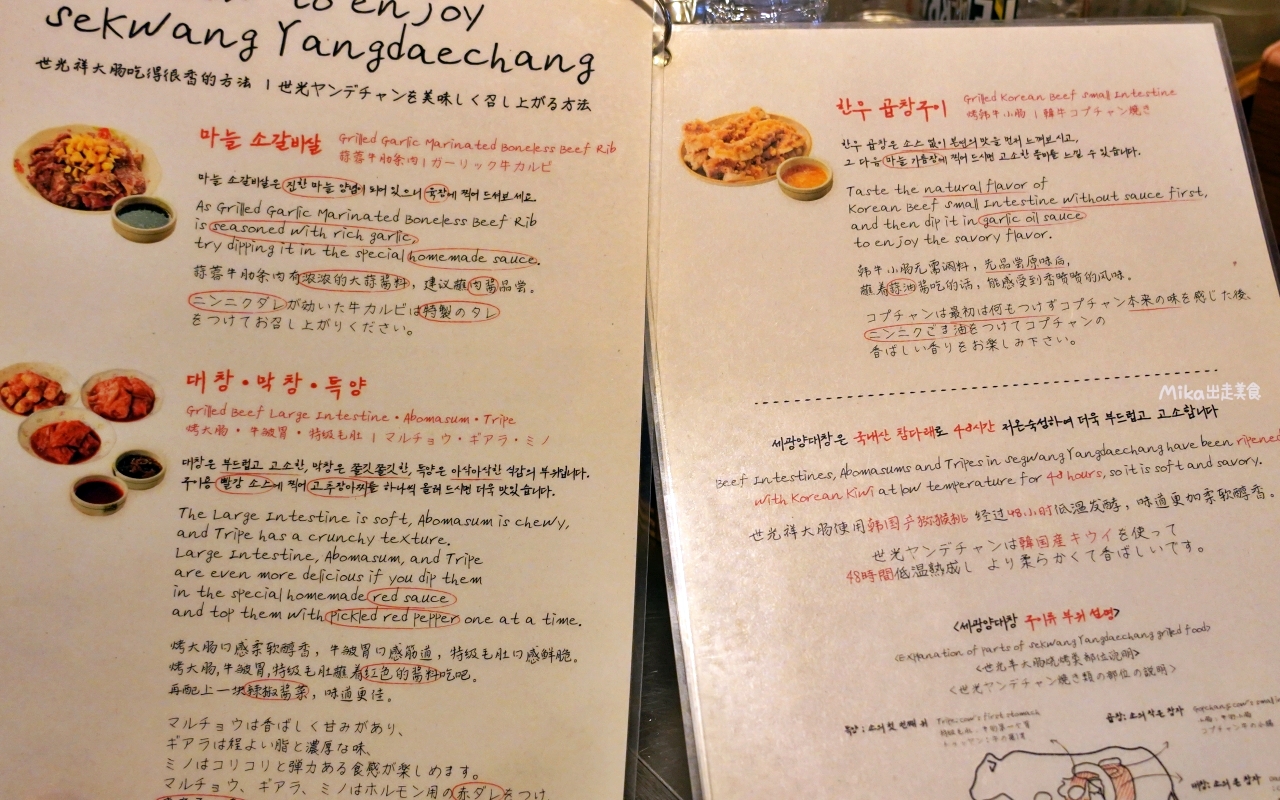 to enjoy
sekwang Yangdaechang
世光祥大肠吃得很香的方法 | 世光ヤンデチャンを美味しく召し上がる方法
마늘 소갈비살
Grilled Garlic Marinated Boneless Beef Rib
蒜蓉牛肋条肉 | ガーリック牛カルビ
마늘 소갈비살은 진한 마늘 양념이 되어 있으니 육장에 찍어 드셔보세요
As Grilled Garlic Marinated Boneless Beef Rib
is seasoned with rich garlic,
try dipping it in the special homemade sauce.
蒜蓉牛肋条肉有浓浓的大蒜酱料，建议蘸肉酱品尝。
ニンニクダレが効いた牛カルビは特製のタレ
をつけてお召し上がりください。
대창•막창•특양
Grilled Beef Large Intestine • Abomasum • Tripe
烤大肠・牛皱胃・特级毛肚 | マルチョウ・ギアラ・ミノ
대창은 부드럽고 고소한, 막창은 쫄깃쫄깃한, 특양은 아삭아삭한 식감의 부위입니다.
구이용 빨강 소스에 찍어 고추장아찌를 하나씩 올려 드시면 더욱 맛있습니다.
The Large Intestine is soft, Abomasum is chewy,
and Tripe has a crunchy texture.
Large Intestine, Abomasum, and Tripe
are even more delicious if you dip them
in the special homemade red sauce
and top them with pickled red pepper one at a time.
烤大肠口感柔软醇香，牛皱胃口感筋道，特级毛肚口感鲜脆。
烤大肠,牛皱胃,特级毛肚蘸着红色的酱料吃吧。
再配上一块辣椒酱菜，味道更佳。
マルチョウは香ばしく甘みがあり、
ギアラは程よい脂と濃厚な味、
ミノはコリコリと弾力ある食感が楽しめます。
マルチョウ、ギアラ、ミノはホルモン用の赤ダレをつけ
한우 곱창구이
Grilled Korean Beef small Intestine
烤韩牛小肠 | 韓牛コプチャン焼き
한우 곱창은 소스 없이 본연의 맛을 먼저 느껴보시고,
그 다음 마늘 기름장에 찍어 드시면 고소한 풍미를 느낄 수 있습니다.
Taste the natural flavor of
Korean Beef small Intestine without sauce first,
and then dip it in garlic oil sauce
to enjoy the savory flavor.
韩牛小肠无需调料，先品尝原味后，
蘸着蒜油酱吃的话，能感受到香喷喷的风味。
コプチャンは最初は何もつけずコプチャン本来の味を感じた後、
ニンニクごま油をつけてコプチャンの
香ばしい香りをお楽しみ下さい。
Mika出走美食
세광양대창은 국내산 참다래로 48시간 저온숙성하여 더욱 부드럽고 고소합니다
Beef Intestines, Abomasums and Tripes in segwang Yangdaechang have been ripened
with Korean Kiwi at low temperature for 48 hours, so it is soft and savory.
世光祥大肠使用韩国产猕猴桃 经过48小时低温发酵，味道更加柔软醇香。
世光ヤンデチャンは韓国産キウイを使って
48時間低温熟成し より柔らかくて香ばしいです。
<세광양대창 구이류 부위 설명>
<Explanation of parts of sekwang Yangdaechang grilled food>
<世光羊大肠烧烤类部位说明>
<世光ヤンデチャン焼き類の部位の説明>
특양: 소의 첫 번째 위
Tripe: cow's first stomach
곱창: 소의 작은 창자